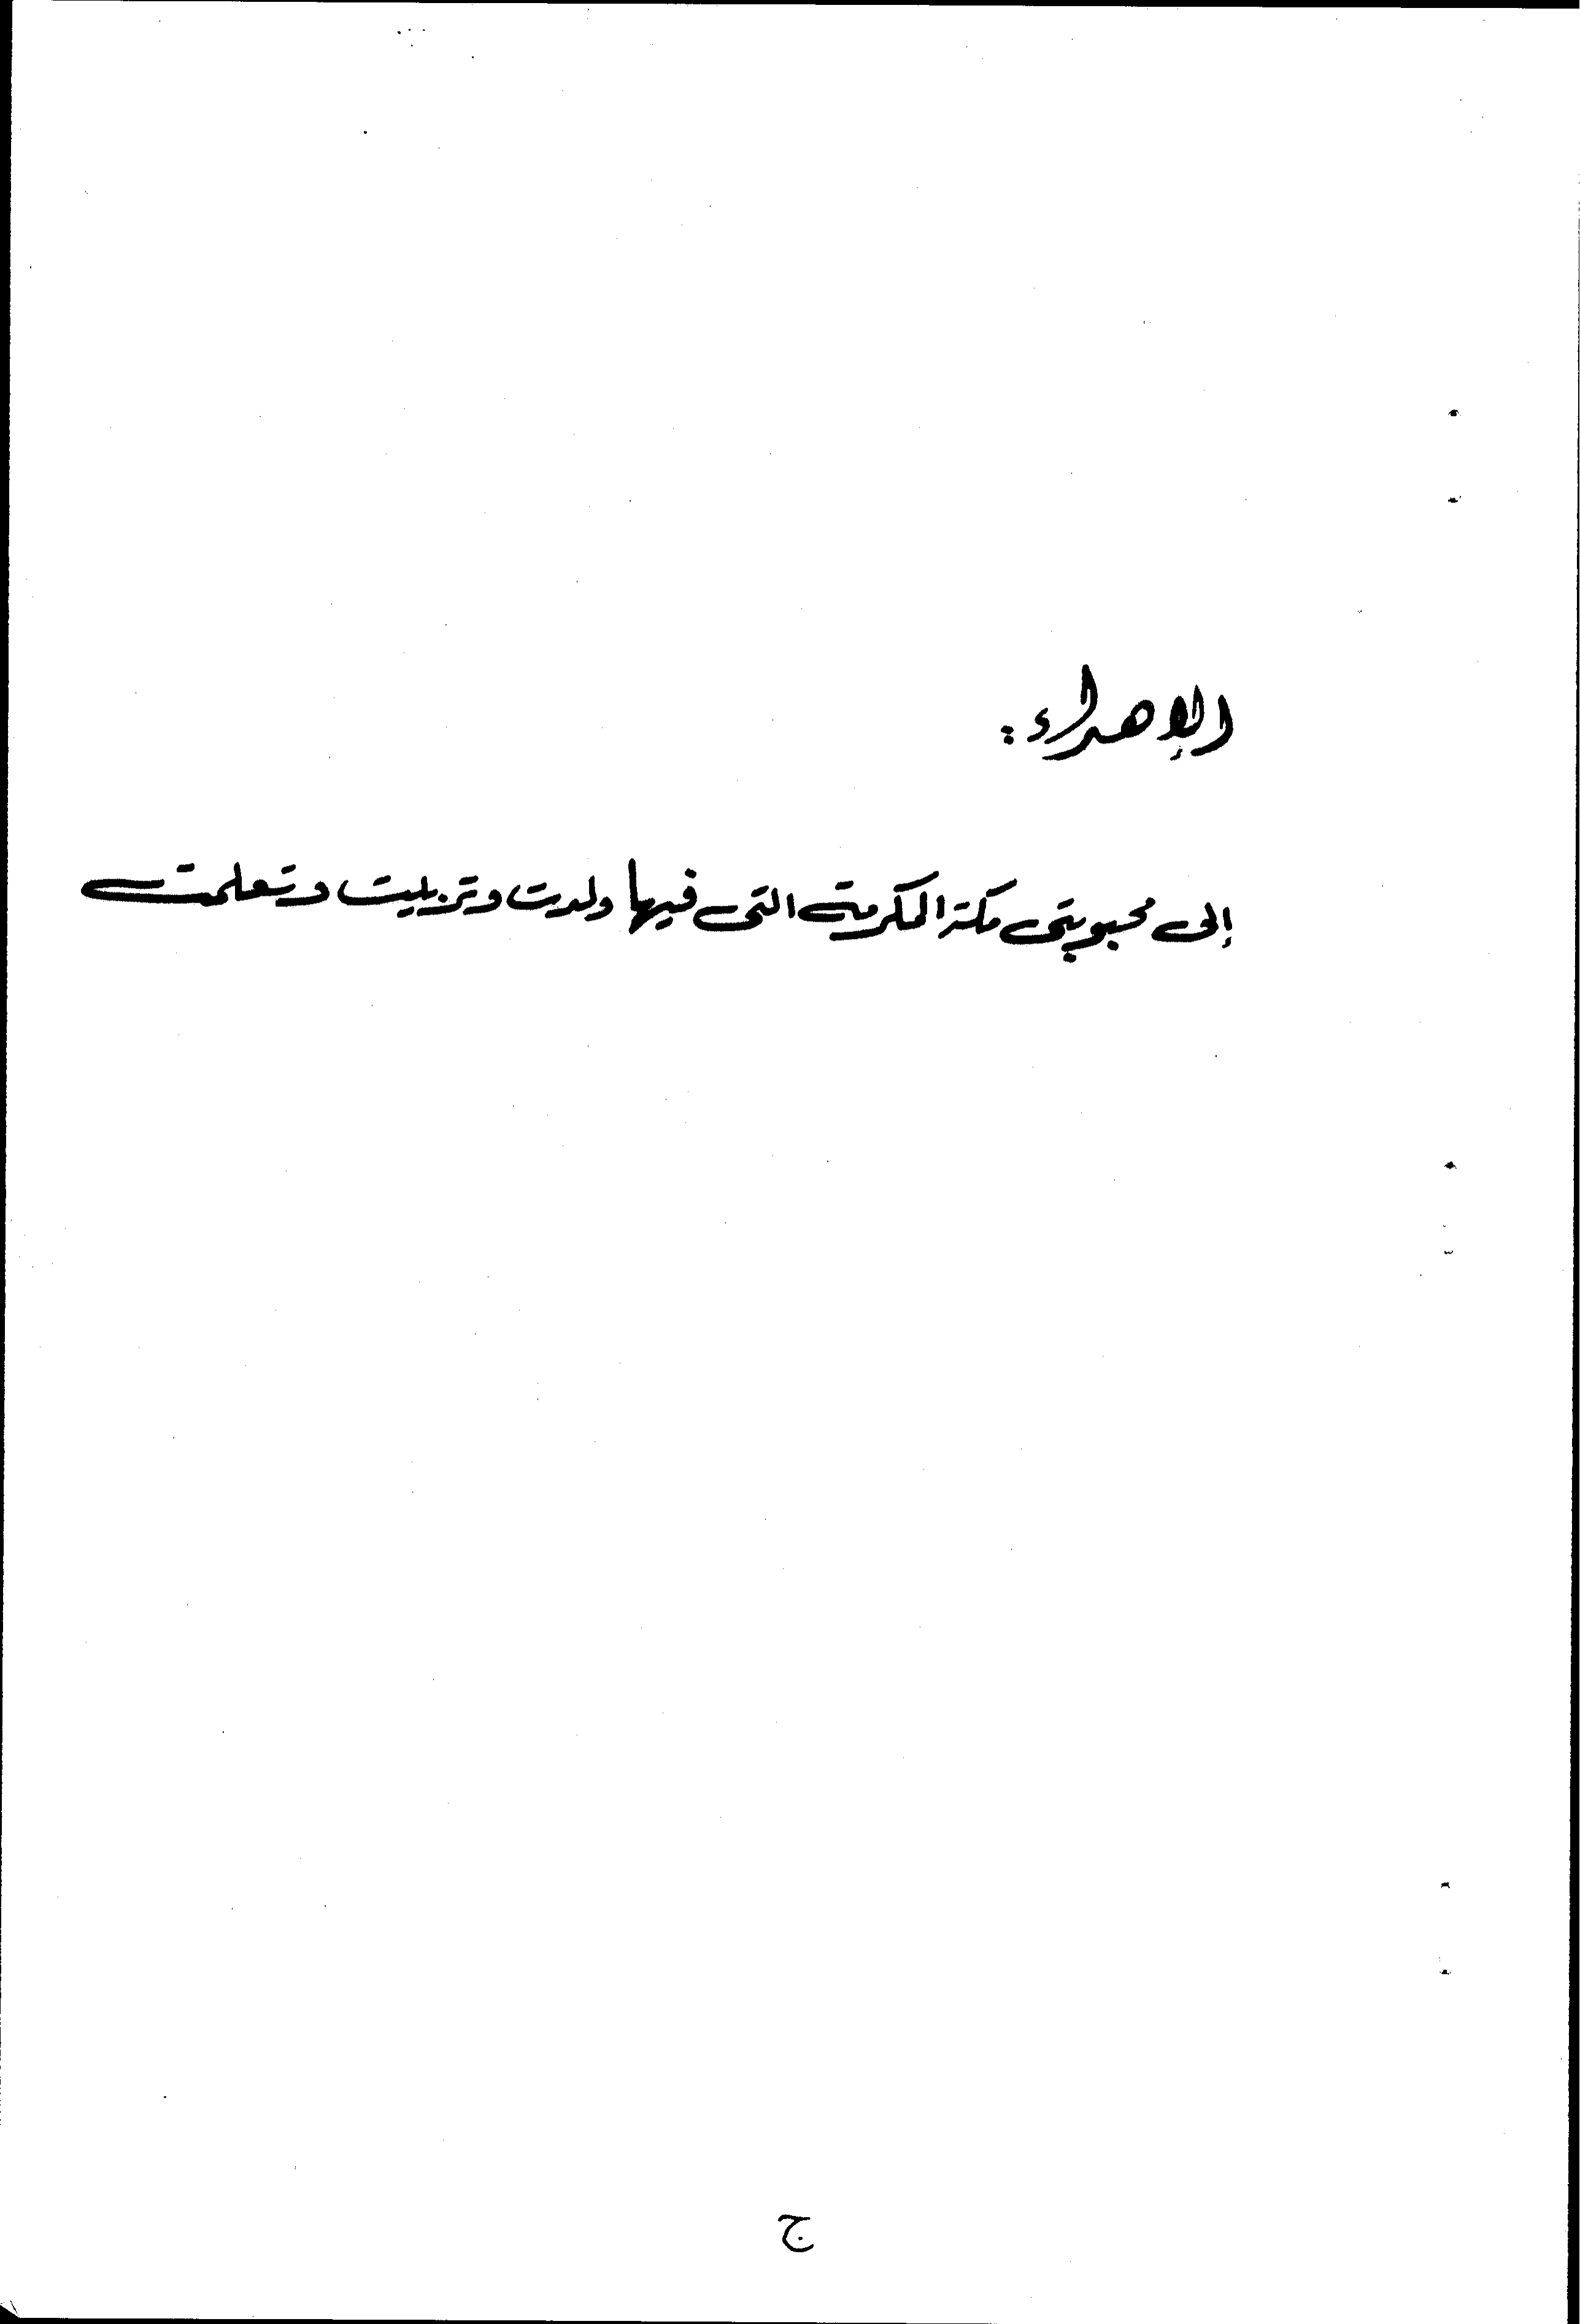 الإهداء:
إلى محبوبتى مكة المكرمة التى فيها ولدت وتربيت وتعلمت
ج